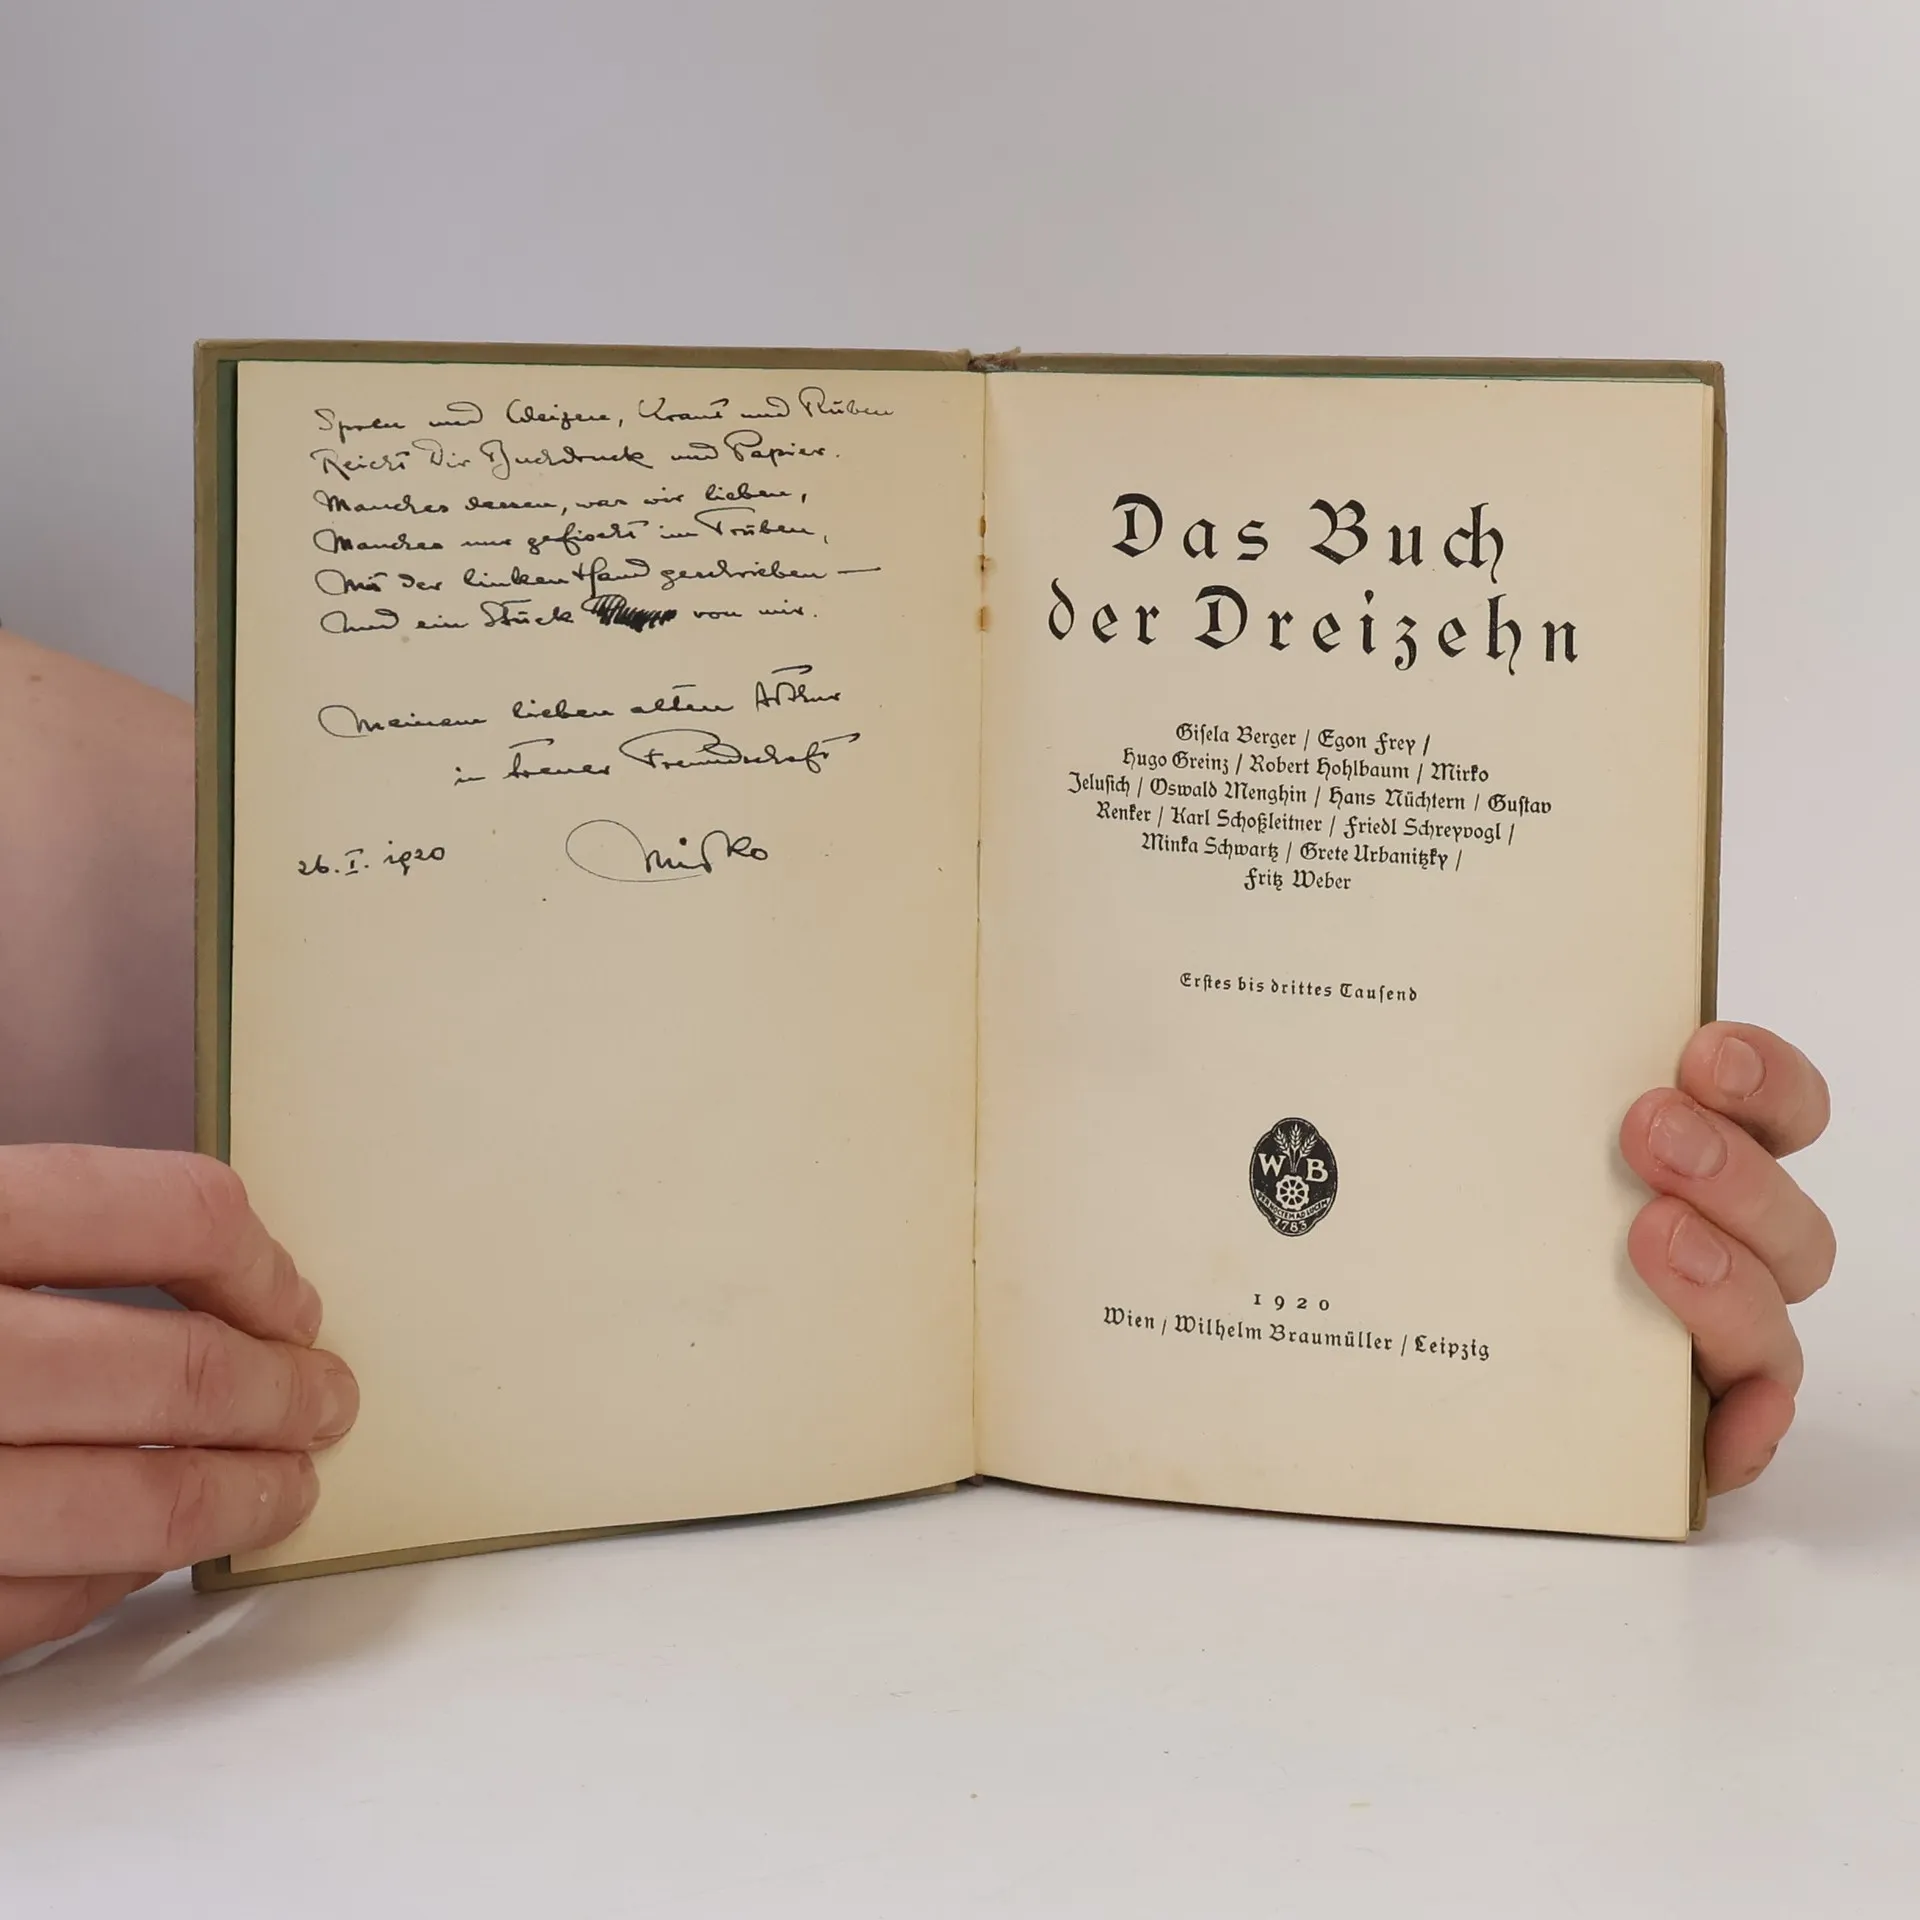 Spreu und Weizen, Kraut und Rüben
Reicht Dir Buchdruck und Papier.
Manches dessen, was wir lieben,
Manches nur gefischt im Trüben,
Mit der linken Hand geschrieben —
Und ein Stück von mir.
Meinem lieben alten Arthur
in treuer Freundschaft
26. I. 1920
Mirko
Das Buch
der Dreizehn
Gisela Berger / Egon Frey /
Hugo Greinz / Robert Hohlbaum / Mirko
Jelusich / Oswald Menghin / Hans Nüchtern / Gustav
Renker / Karl Schoßleitner / Friedl Schreyvogl /
Minka Schwartz / Grete Urbanitzky /
Fritz Weber
Erstes bis drittes Tausend
W B
PER NOCTEM AD LUCEM
1783
1920
Wien / Wilhelm Braumüller / Leipzig